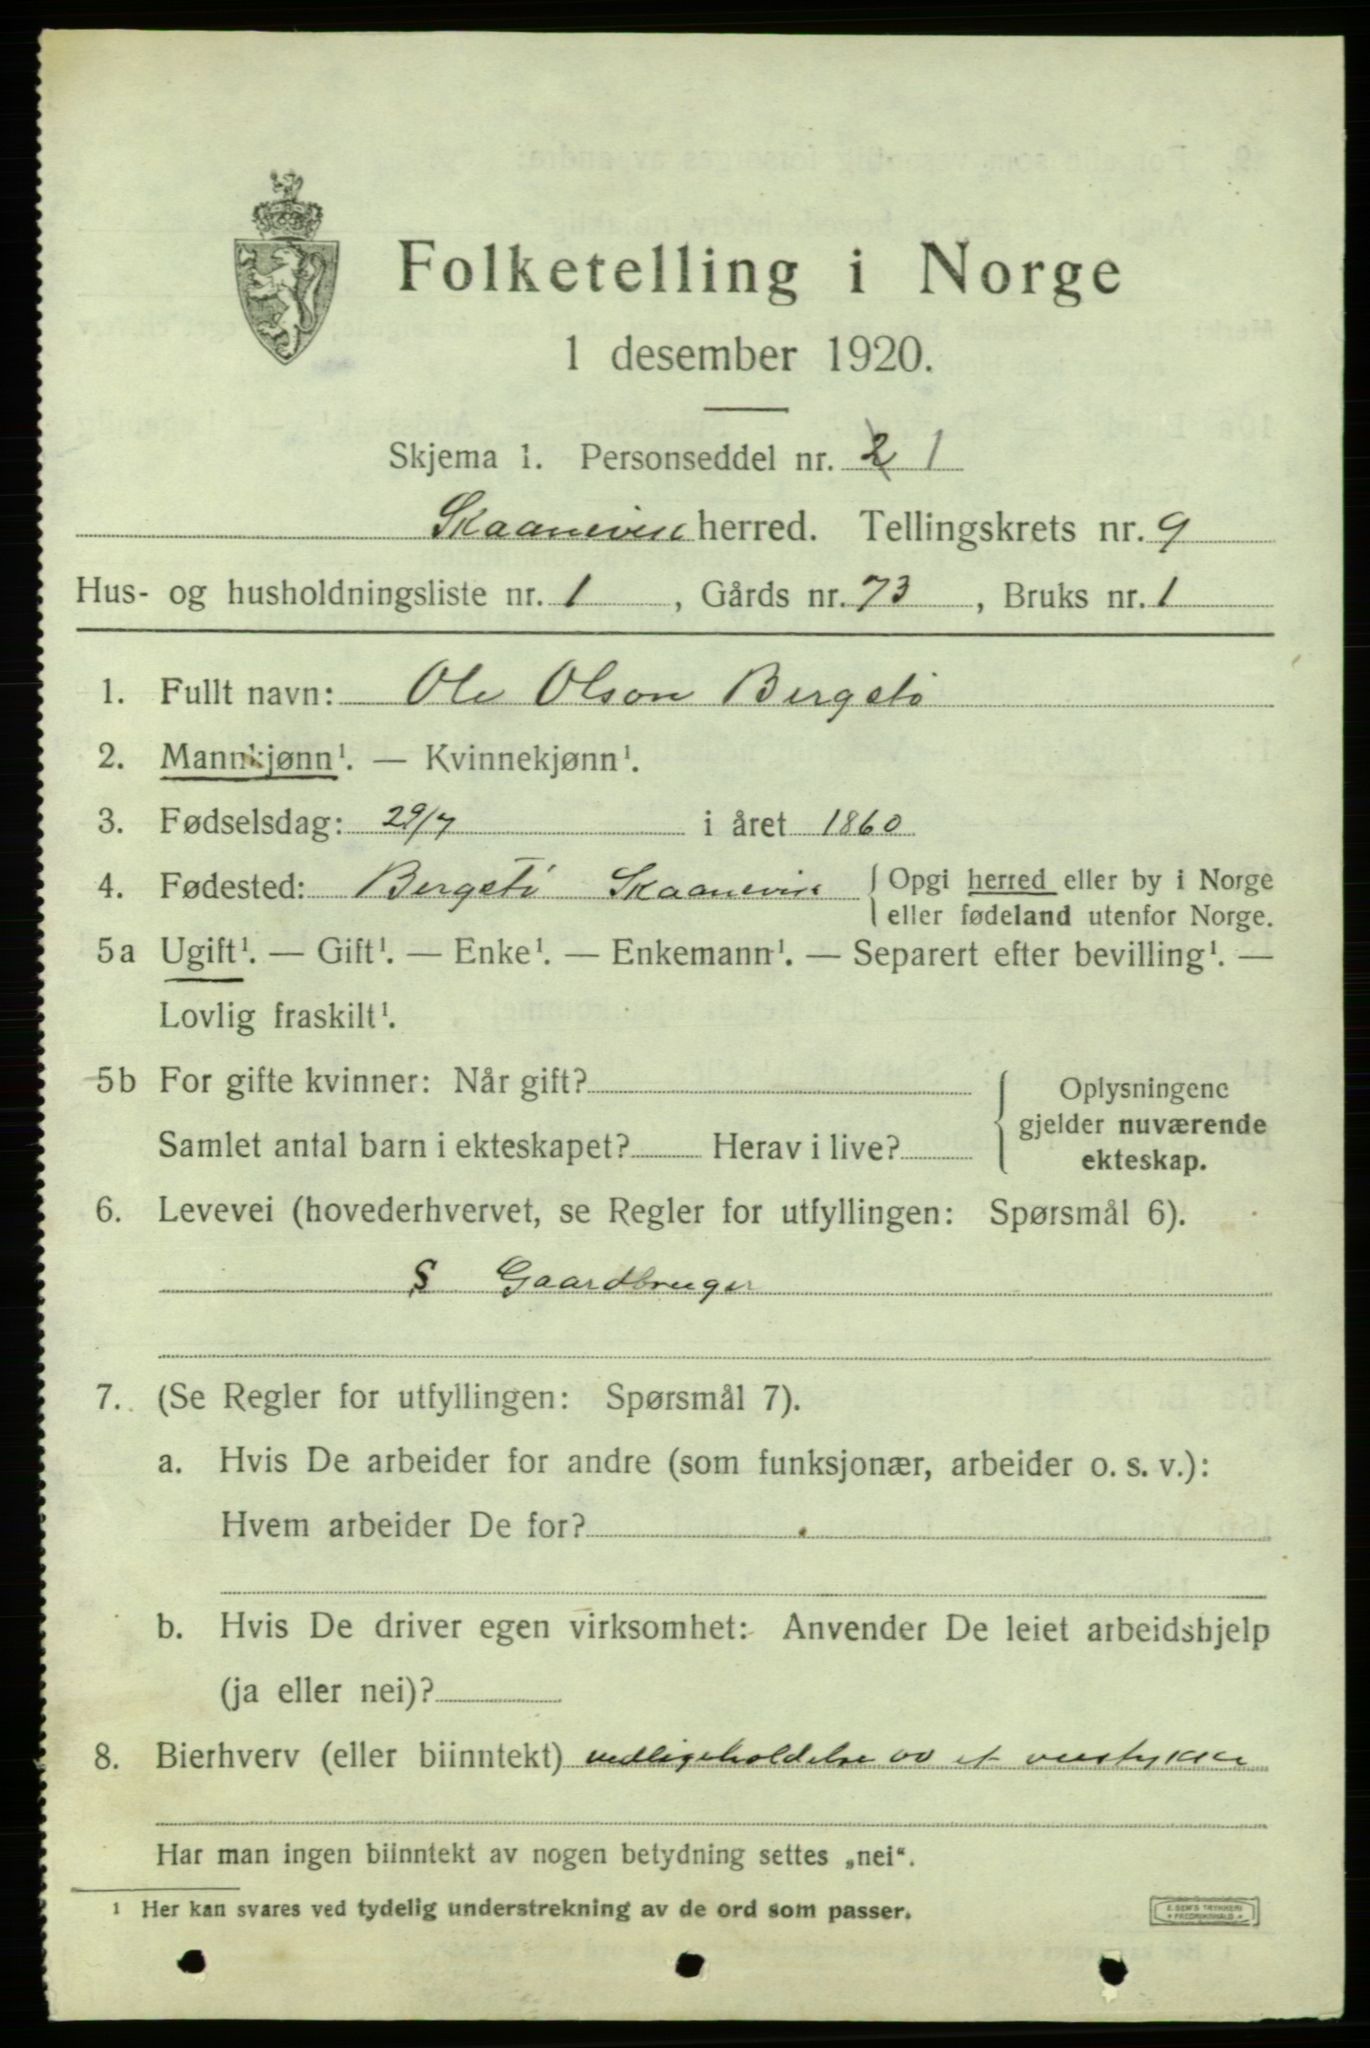 Folketelling i Norge
1 desember 1920.
Skjema 1. Personseddel nr. 2 1
Skaanevik herred. Tellingskrets nr. 9
Hus- og husholdningsliste nr. 1, Gårds nr. 73, Bruks nr. 1
1. Fullt navn: Ole Olson Bergstö
2. Mannkjønn¹. — Kvinnekjønn¹.
3. Fødselsdag: 29/7 i året 1860
4. Fødested: Bergstö Skaanevik { Opgi herred eller by i Norge
eller fødeland utenfor Norge.
5a Ugift¹. — Gift¹. — Enke¹. — Enkemann¹. — Separert efter bevilling¹. —
Lovlig fraskilt¹.
5b For gifte kvinner: Når gift?
Samlet antal barn i ekteskapet? Herav i live?
Oplysningene
gjelder nuværende
ekteskap.
6. Levevei (hovederhvervet, se Regler for utfyllingen: Spørsmål 6).
S Gaardbruger
7. (Se Regler for utfyllingen: Spørsmål 7).
a. Hvis De arbeider for andre (som funksjonær, arbeider o. s. v.):
Hvem arbeider De for?
b. Hvis De driver egen virksomhet: Anvender De leiet arbeidshjelp
(ja eller nei)?
8. Bierhverv (eller biinntekt) vedligeholdelse av et veistykke
Har man ingen biinntekt av nogen betydning settes „nei“.
¹ Her kan svares ved tydelig understrekning av de ord som passer.
E. SEM'S TRYKKERI
FREDRIKSHALD